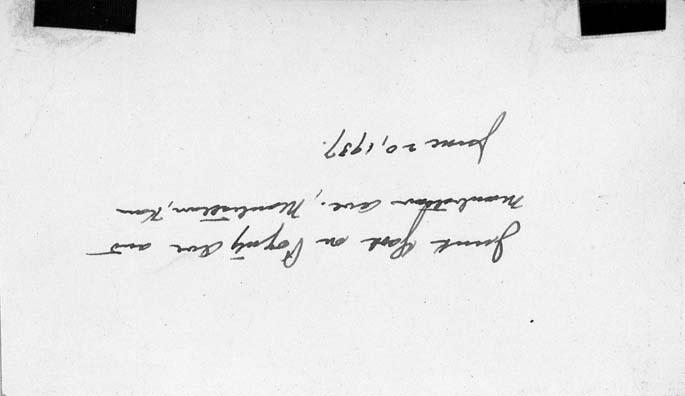 Junk Yard on Poyntz Ave and
Manhattan Ave., Manhattan, Kan
June 20, 1937.